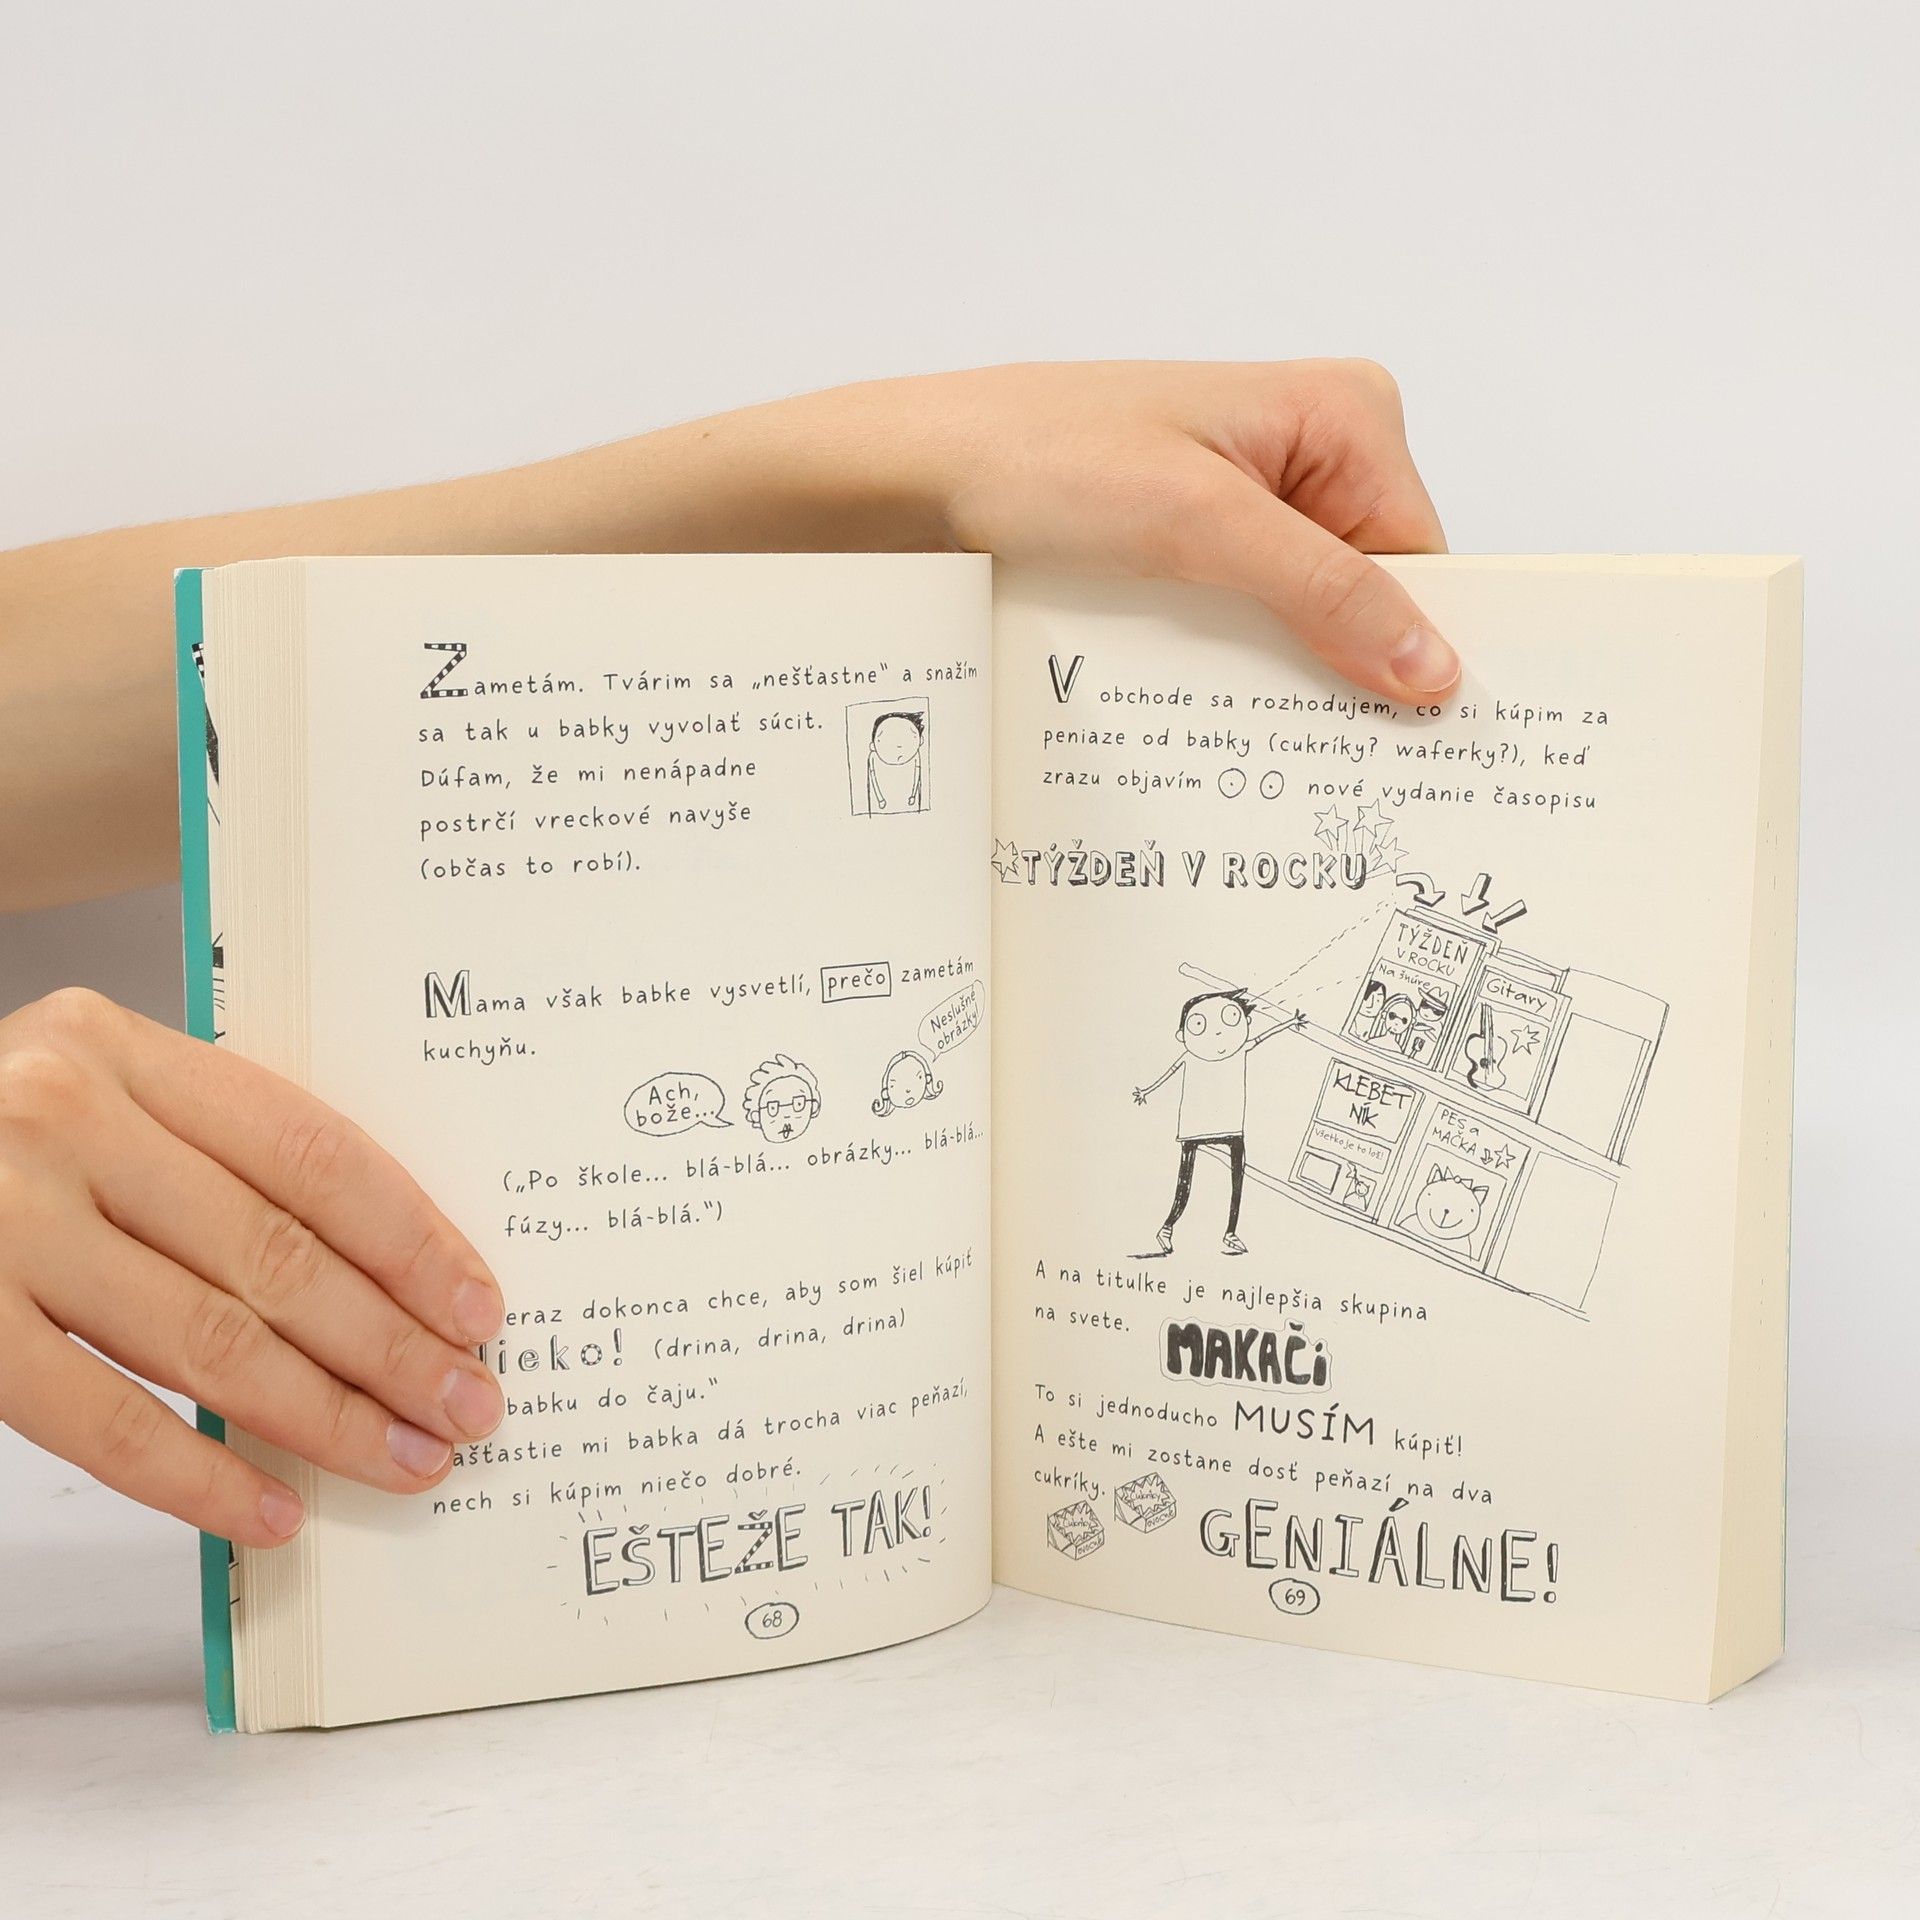 Zametám. Tvárim sa „nešťastne“ a snažím
sa tak u babky vyvolať súcit.
Dúfam, že mi nenápadne
postrčí vreckové navyše
(občas to robí).
Mama však babke vysvetlí, prečo zametám
kuchyňu.
Neslušné
obrázky!
Ach,
bože...
(„Po škole... blá-blá... obrázky... blá-blá...
fúzy... blá-blá.“)
eraz dokonca chce, aby som šiel kúpiť
lieko! (drina, drina, drina)
babku do čaju.“
ašťastie mi babka dá trocha viac peňazí,
nech si kúpim niečo dobré.
EŠTEŽE TAK!
68
V obchode sa rozhodujem, čo si kúpim za
peniaze od babky (cukríky? waferky?), keď
zrazu objavím nové vydanie časopisu
TÝŽDEŇ V ROCKU
TÝŽDEŇ
V ROCKU
Na šnúre
Gitary
KLEBET
NÍK
Všetko je to lož!
PES a
MAČKA
A na titulke je najlepšia skupina
na svete. MAKAČi
To si jednoducho MUSÍM kúpiť!
A ešte mi zostane dosť peňazí na dva
cukríky.
Cukríky
OVOCNÉ
Cukríky
OVOCNÉ
GENIÁLNE!
69